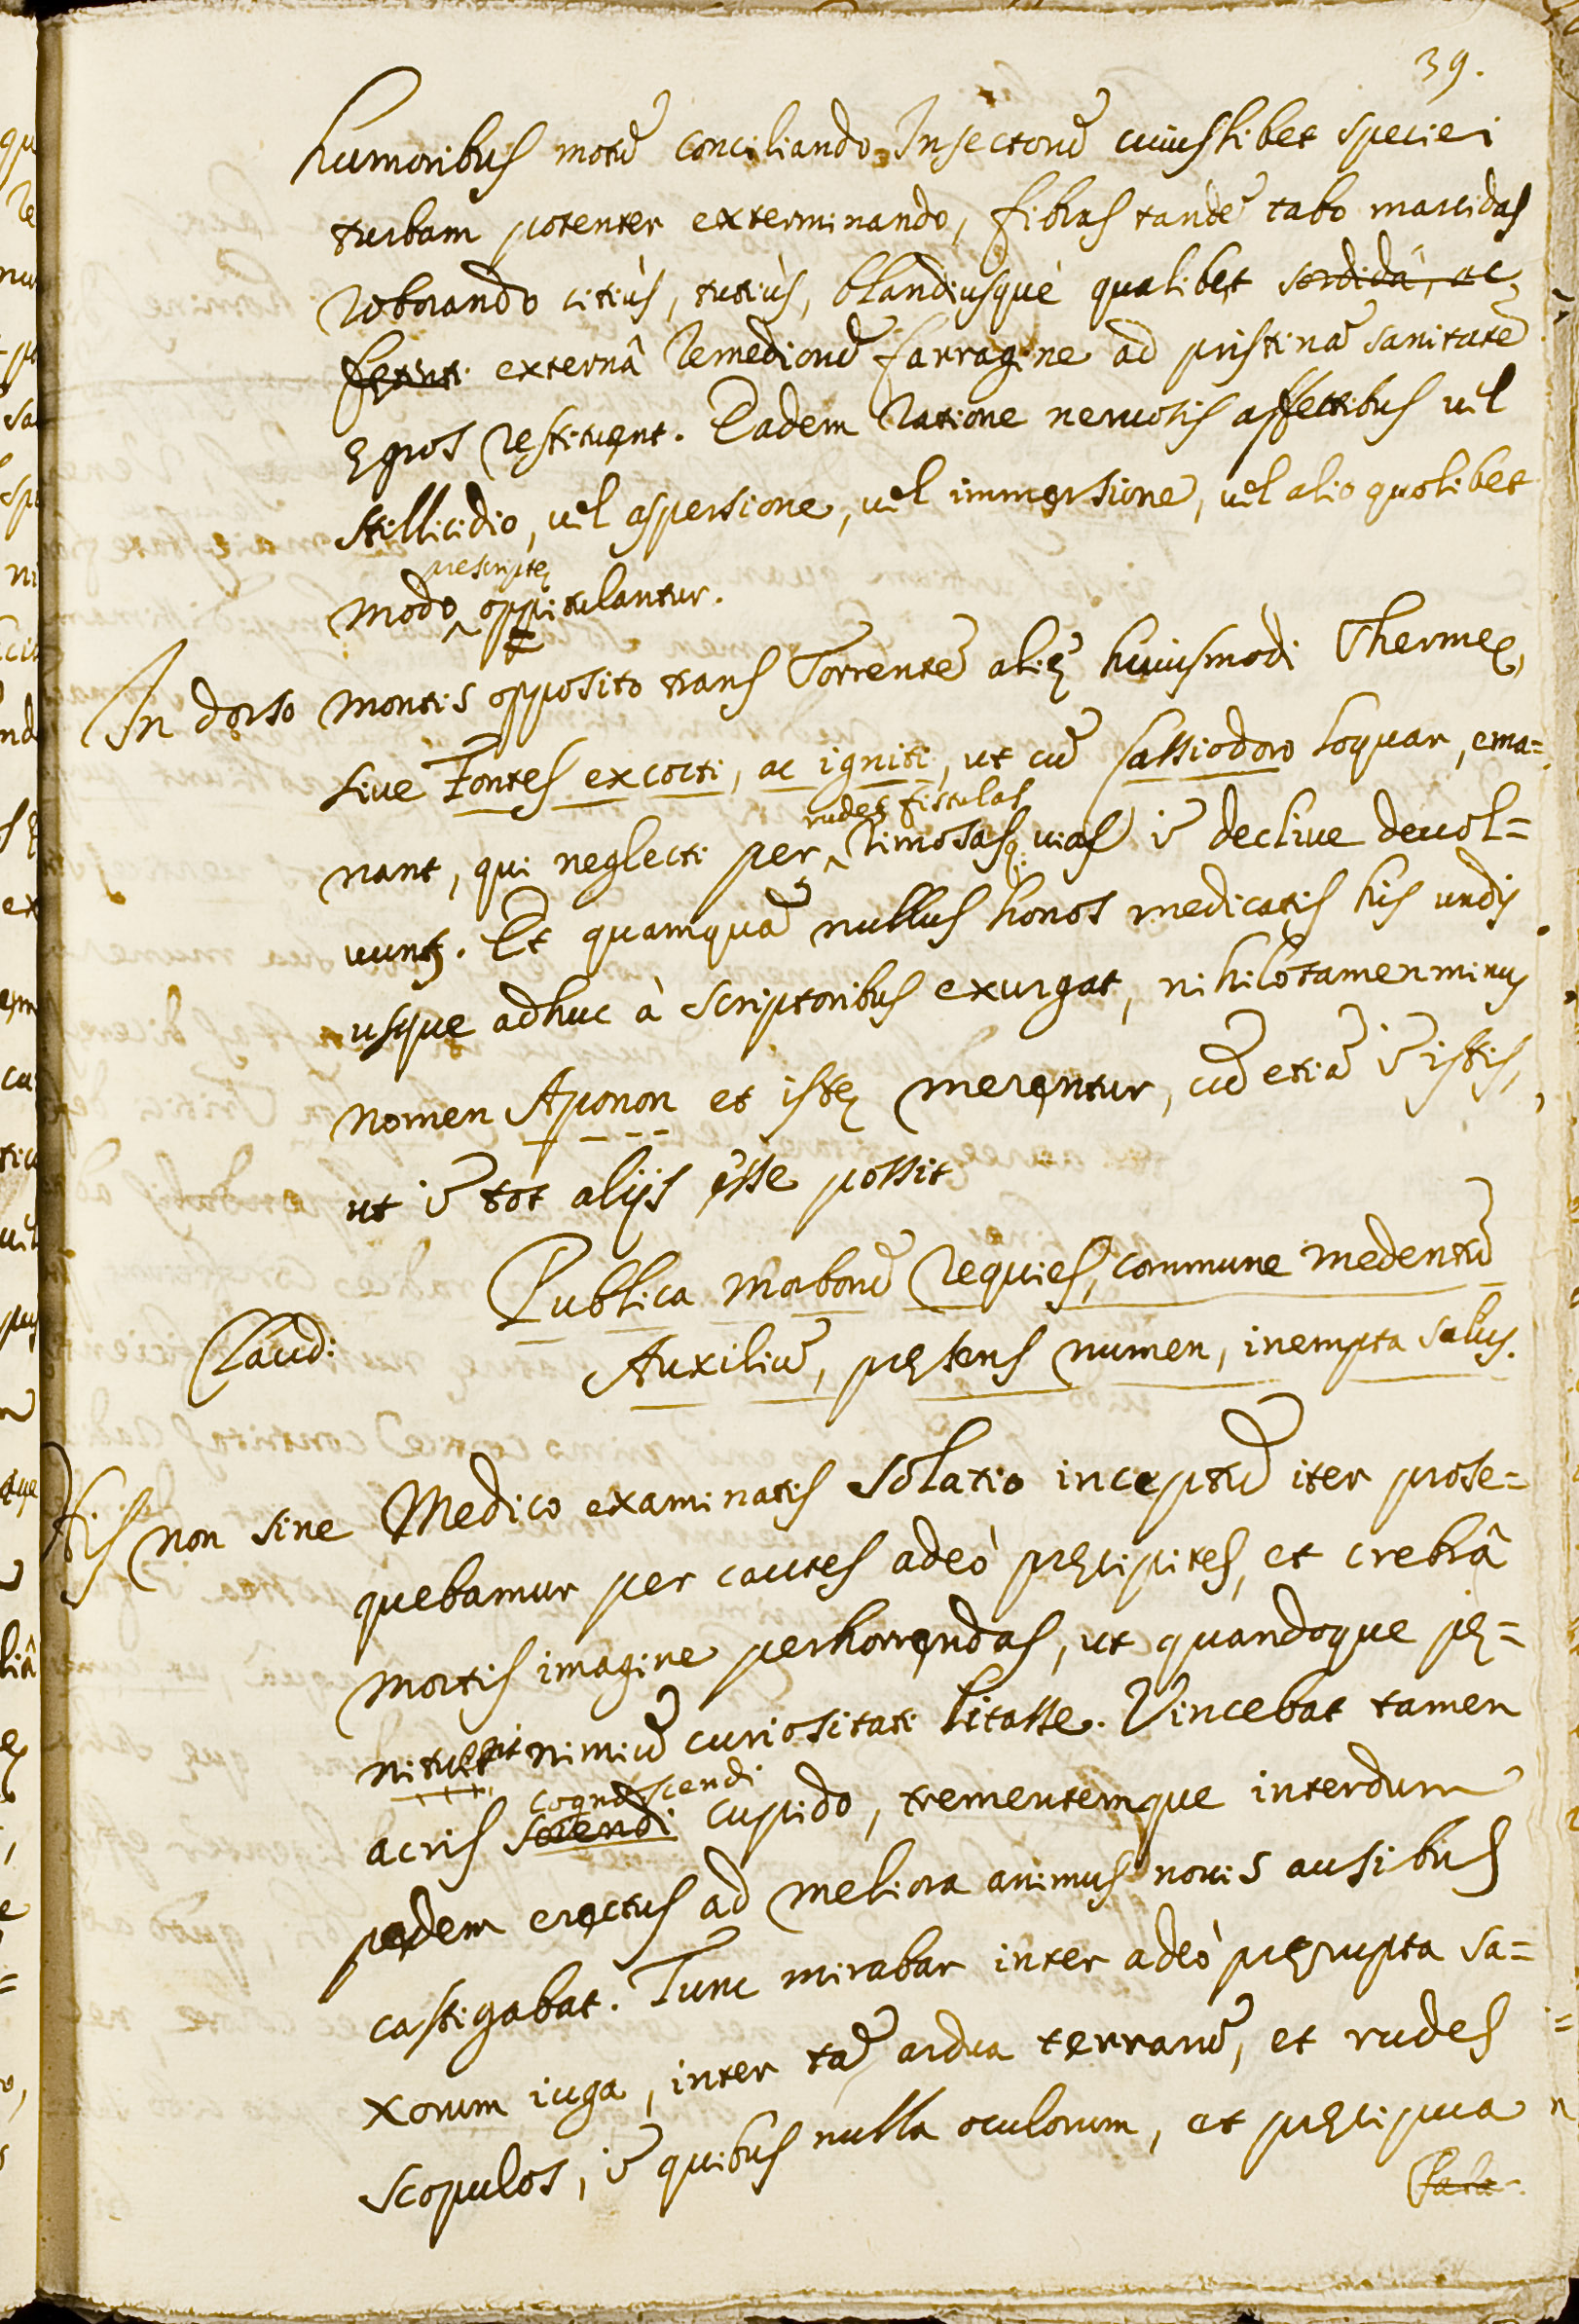 39.
humoribus motũ conciliando, Insectorũ cuiuslibet speciei
turbam potenter exterminando, fibras tandẽ tabo marcidas
roborando citiùs, tutiùs, blandiusquè qualibet sordidâ, ac
fętenti externâ remediorũ farragine ad pristinã sanitatẽ
ęgros restituent. Eadem ratione neruosis affectibus uel
stillicidio, uel aspersione, uel immersione, uel alio quolibet
pręscriptę
modo ^ oppitulantur.
In dorso montis opposito trans Torrentẽ alię huiusmodi Thermę,
siue Fontes excocti, ac igniti, ut cũ Cassiodoro loquar, ema=
rudes fistulas
nant, qui neglecti per ^ limosasq; uias ĩ decliue deuol=
uunt~. Et quamquã nullus honos medicatis his undis
usque adhuc à Scriptoribus exurgat, nihilotamenminus
nomen Aponon et istę merentur, cũ etiã ĩ istis,
ut ĩ tot alijs esse possit
Publica morborũ requies, commune medentũ
Claud:
Auxiliũ, pręsens numen, inempta salus.
His non sine Medico examinatis solatio inceptũ iter prose=
quebamur per cautes adeò pręcipites, et crebrâ
mortis imagine perhorrendas, ut quandoque pę=
nituerit nimiũ curiositati litasse. Vincebat tamen
cognoscendi
acris sciendi cupido, trementemque interdum
pedem erectus ad meliora animus nouis ausibus
castigabat. Tunc mirabar inter adeò pręrupta sa=
xorum iuga, inter tã ardua terrarũ, et rudes
scopulos, ĩ quibus nulla oculorum, et pręcipua